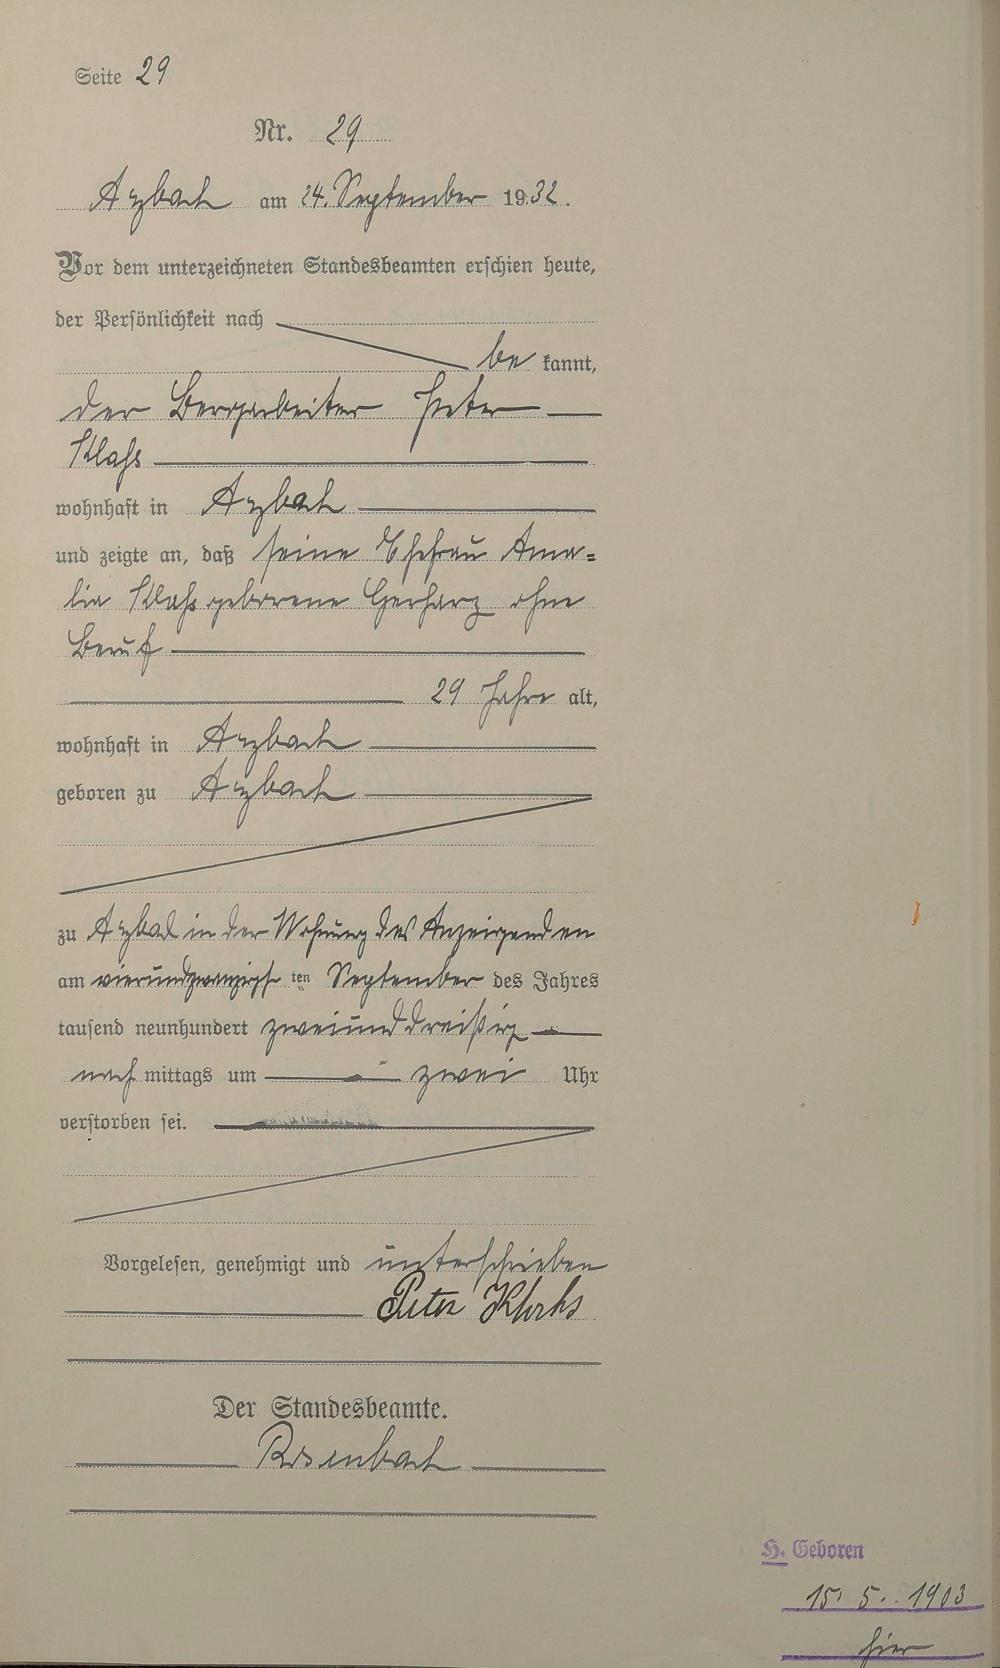 Seite 29
Nr. 29
Arzbach am 24. September 1932.
Vor dem unterzeichneten Standesbeamten erschien heute,
der Persönlichkeit nach
be kannt,
der Bergarbeiter Peter
Klaß
wohnhaft in Arzbach
und zeigte an, daß seine Ehefrau Ama=
lia Klaß geborene Gerharz ohne
Beruf
29 Jahre alt,
wohnhaft in Arzbach
geboren zu Arzbach
zu Arzbach in der Wohnung des Anzeigenden
am vierundzwanzigsten September des Jahres
tausend neunhundert zweiunddreißig
nach mittags um zwei Uhr
verstorben sei.
Vorgelesen, genehmigt und unterschrieben
Peter
Der Standesbeamte.
Rosenbach
H. Geboren
15. 5. 1903
hier